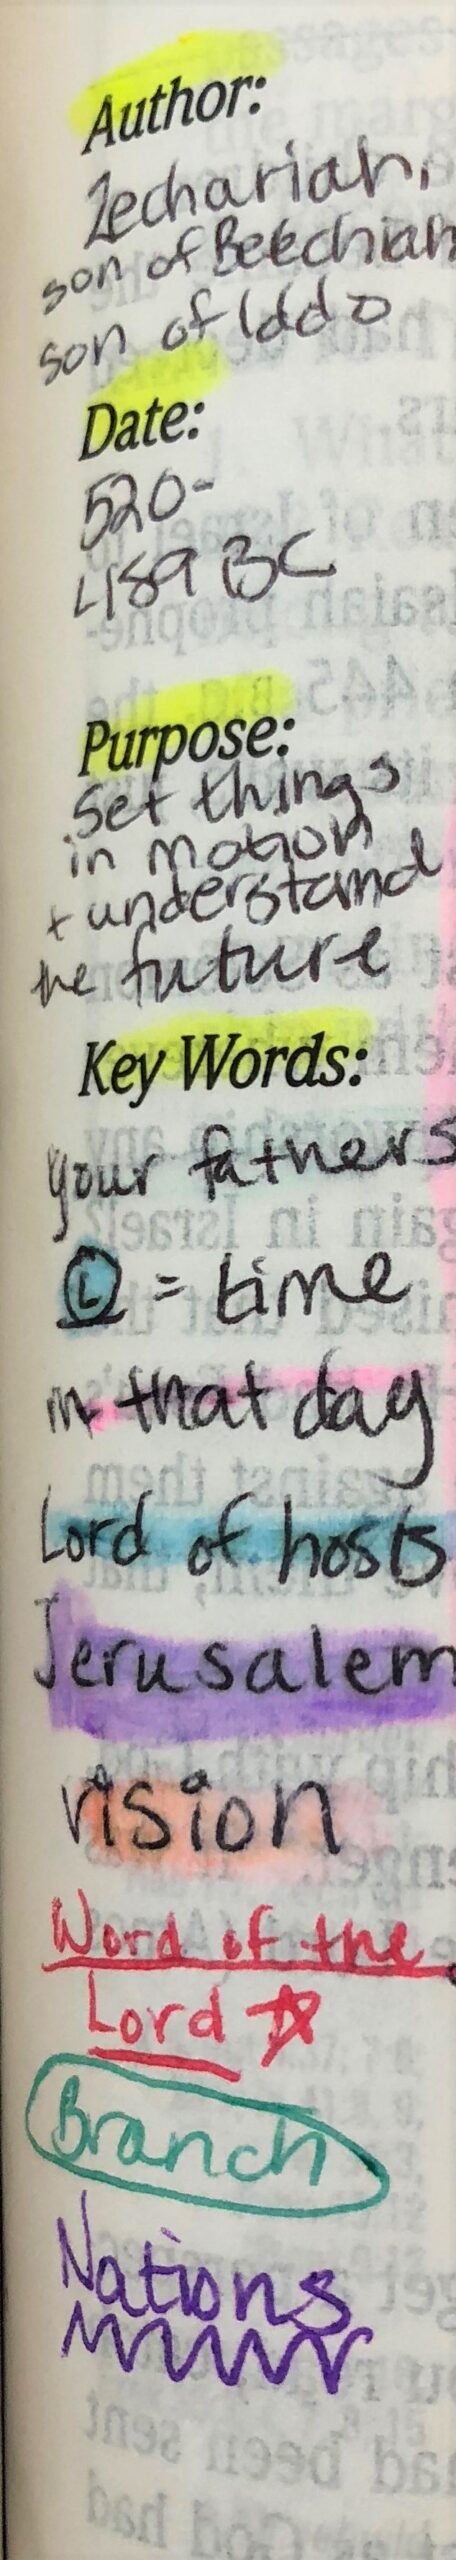 Author:
Zechariah,
son of Berechiah
son of Iddo
Date:
520-
489 BC
Purpose:
Set things
in motion
+ understand
the future
Key Words:
your fathers
L = time
in that day
Lord of hosts
Jerusalem
vision
Word of the
Lord
Branch
Nations